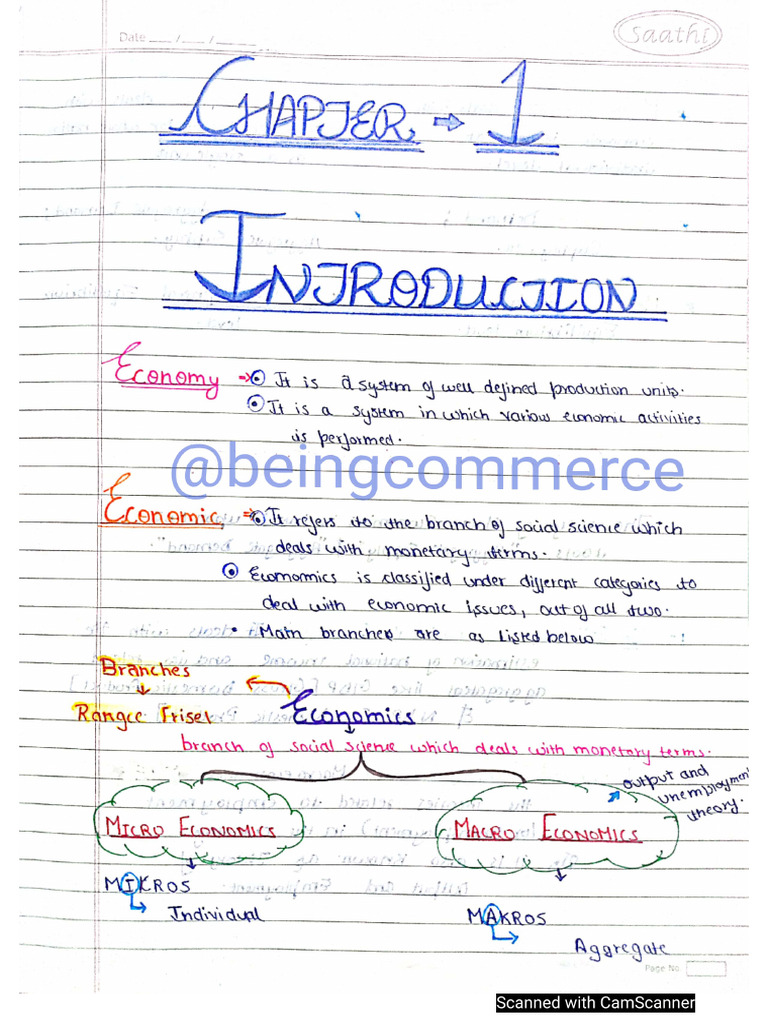 Date ___/___/____
Saathi
CHAPTER → 1
INTRODUCTION
Economy → It is a system of well defined production units.
It is a system in which various economic activities
is performed.
@beingcommerce
Economic → It refers to the branch of social science which
deals with monetary terms.
Ecomomics is classified under different categories to
deal with economic issues, out of all two.
• Main branches are as listed below
Branches
↓
Economics
branch of social science which deals with monetary terms.
output and
unemployment
theory.
MICRO ECONOMICS
MACRO ECONOMICS
MIKROS
Individual
MAKROS
Aggregate
Page No.
Scanned with CamScanner